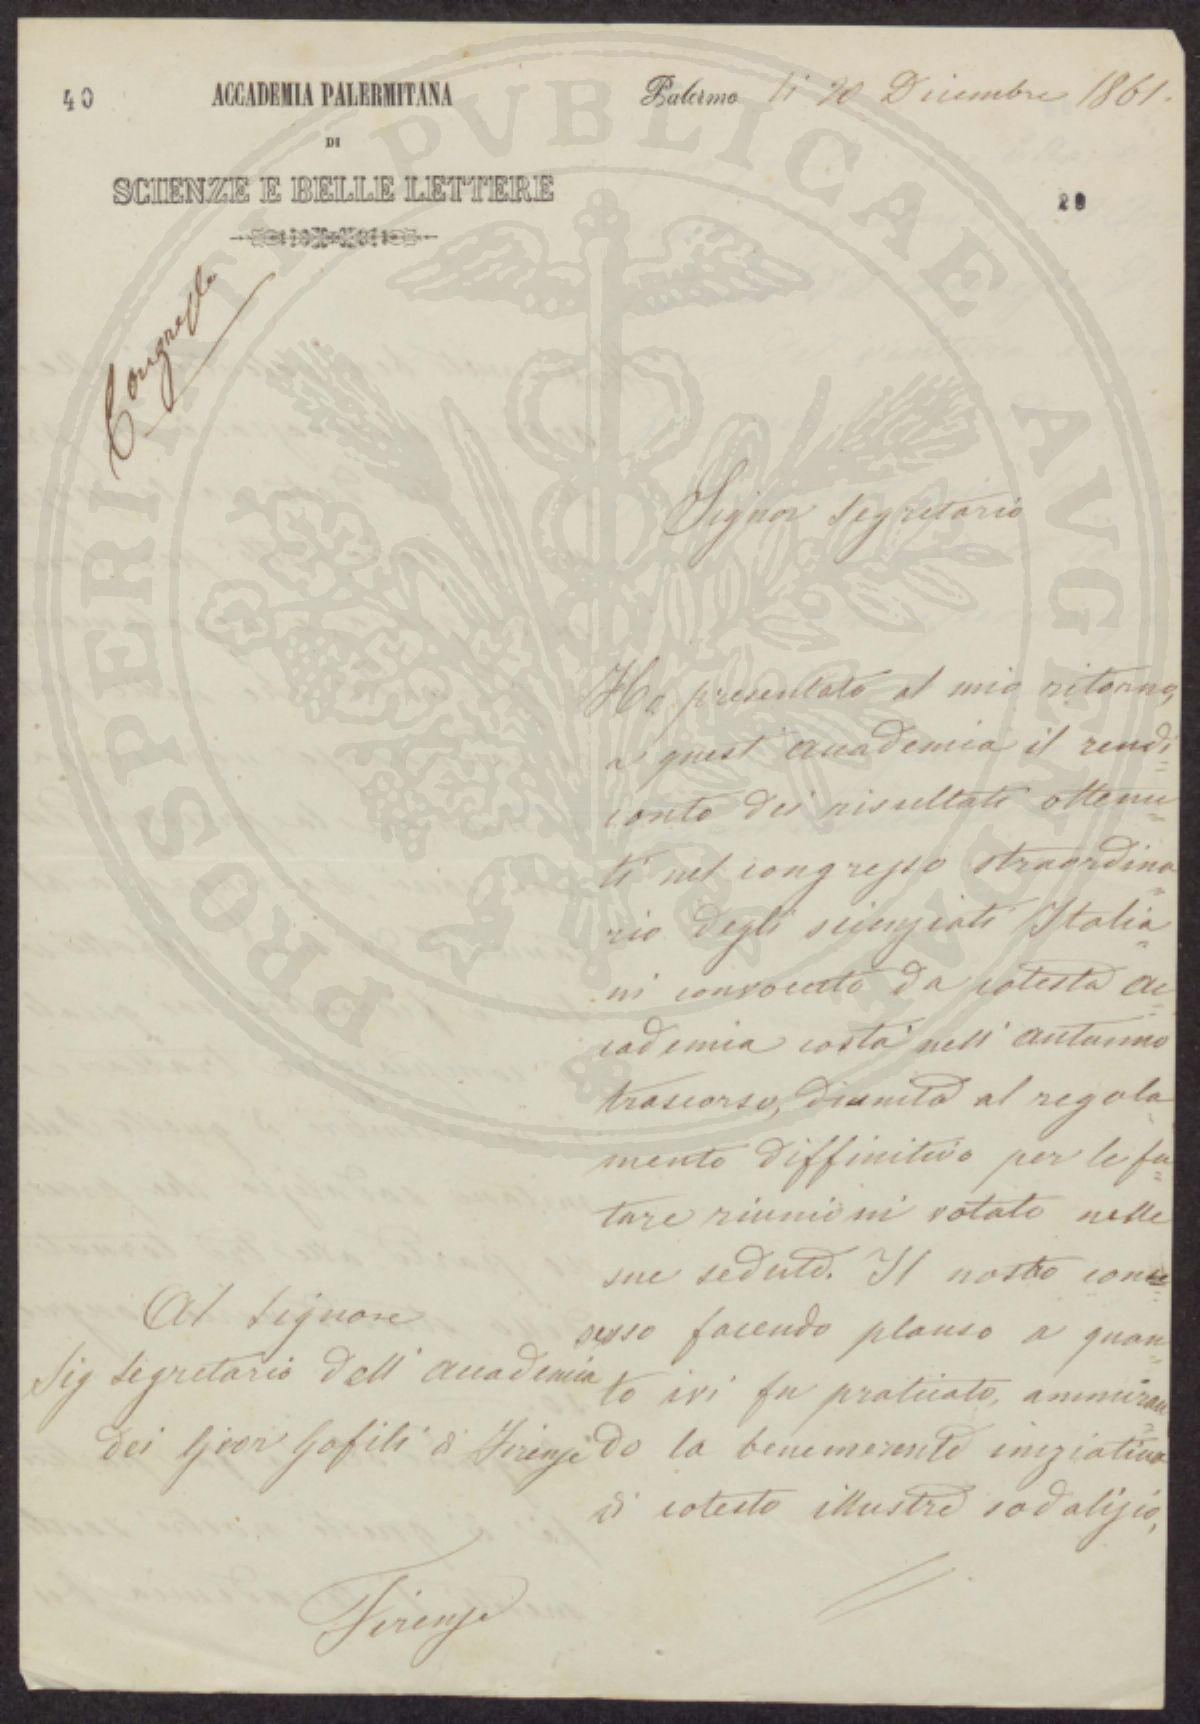 40
ACCADEMIA PALERMITANA
DI
SCIENZE E BELLE LETTERE
Palermo li 20 Dicembre 1861.
28
Congresso
Signor Segretario
Ho presentato al mio ritorno,
a quest' Accademia il rendi=
conto dei risultati ottenu=
ti nel congresso straordina=
rio degli scienziati Italia=
ni convocato da cotesta Ac=
cademia costà nell' autunno
trascorso, diunita al regola=
mento diffinitivo per le fu=
ture riunioni votato nelle
sue sedute. Il nostro con=
sesso facendo plauso a quan=
to ivi fu praticato, ammiran=
do la benemerente iniziativa
di cotesto illustre sodalizio,
Al Signore
Sig Segretario dell' Accademia
dei Geor Gofili di Firenze
Firenze
PROSPERITATI PVBLICAE AVGENDAE